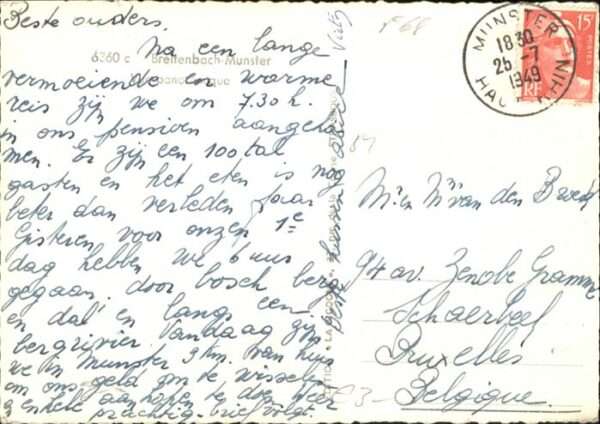 Beste ouders,
Na een lange
6360 c Breitenbach-Munster
vermoeiende en warme
reis zij we om 7.30 h.
in ons pension aangeko
men. Er zijn een 100 tal
gasten en het eten is nog
beter dan verleden jaar
Gisteren voor onzen 1e
dag hebben we 6 uur
gegaan door bosch berg
en dal en langs een
bergrivier. Vandaag zijn
we in Munster 9 km. van huis
om ons geld om te wisselen
enkele aankopen te doen. Weer
prachtig. brief volgt.
Beste kussen
F 68
MUNSTER
1830
25 -7
1949
HAUT-RHIN
15F
POSTES
RF
M' en Mme van den
94 av. Zenobe Gramme
Schaerbeek
Bruxelles
Belgique.